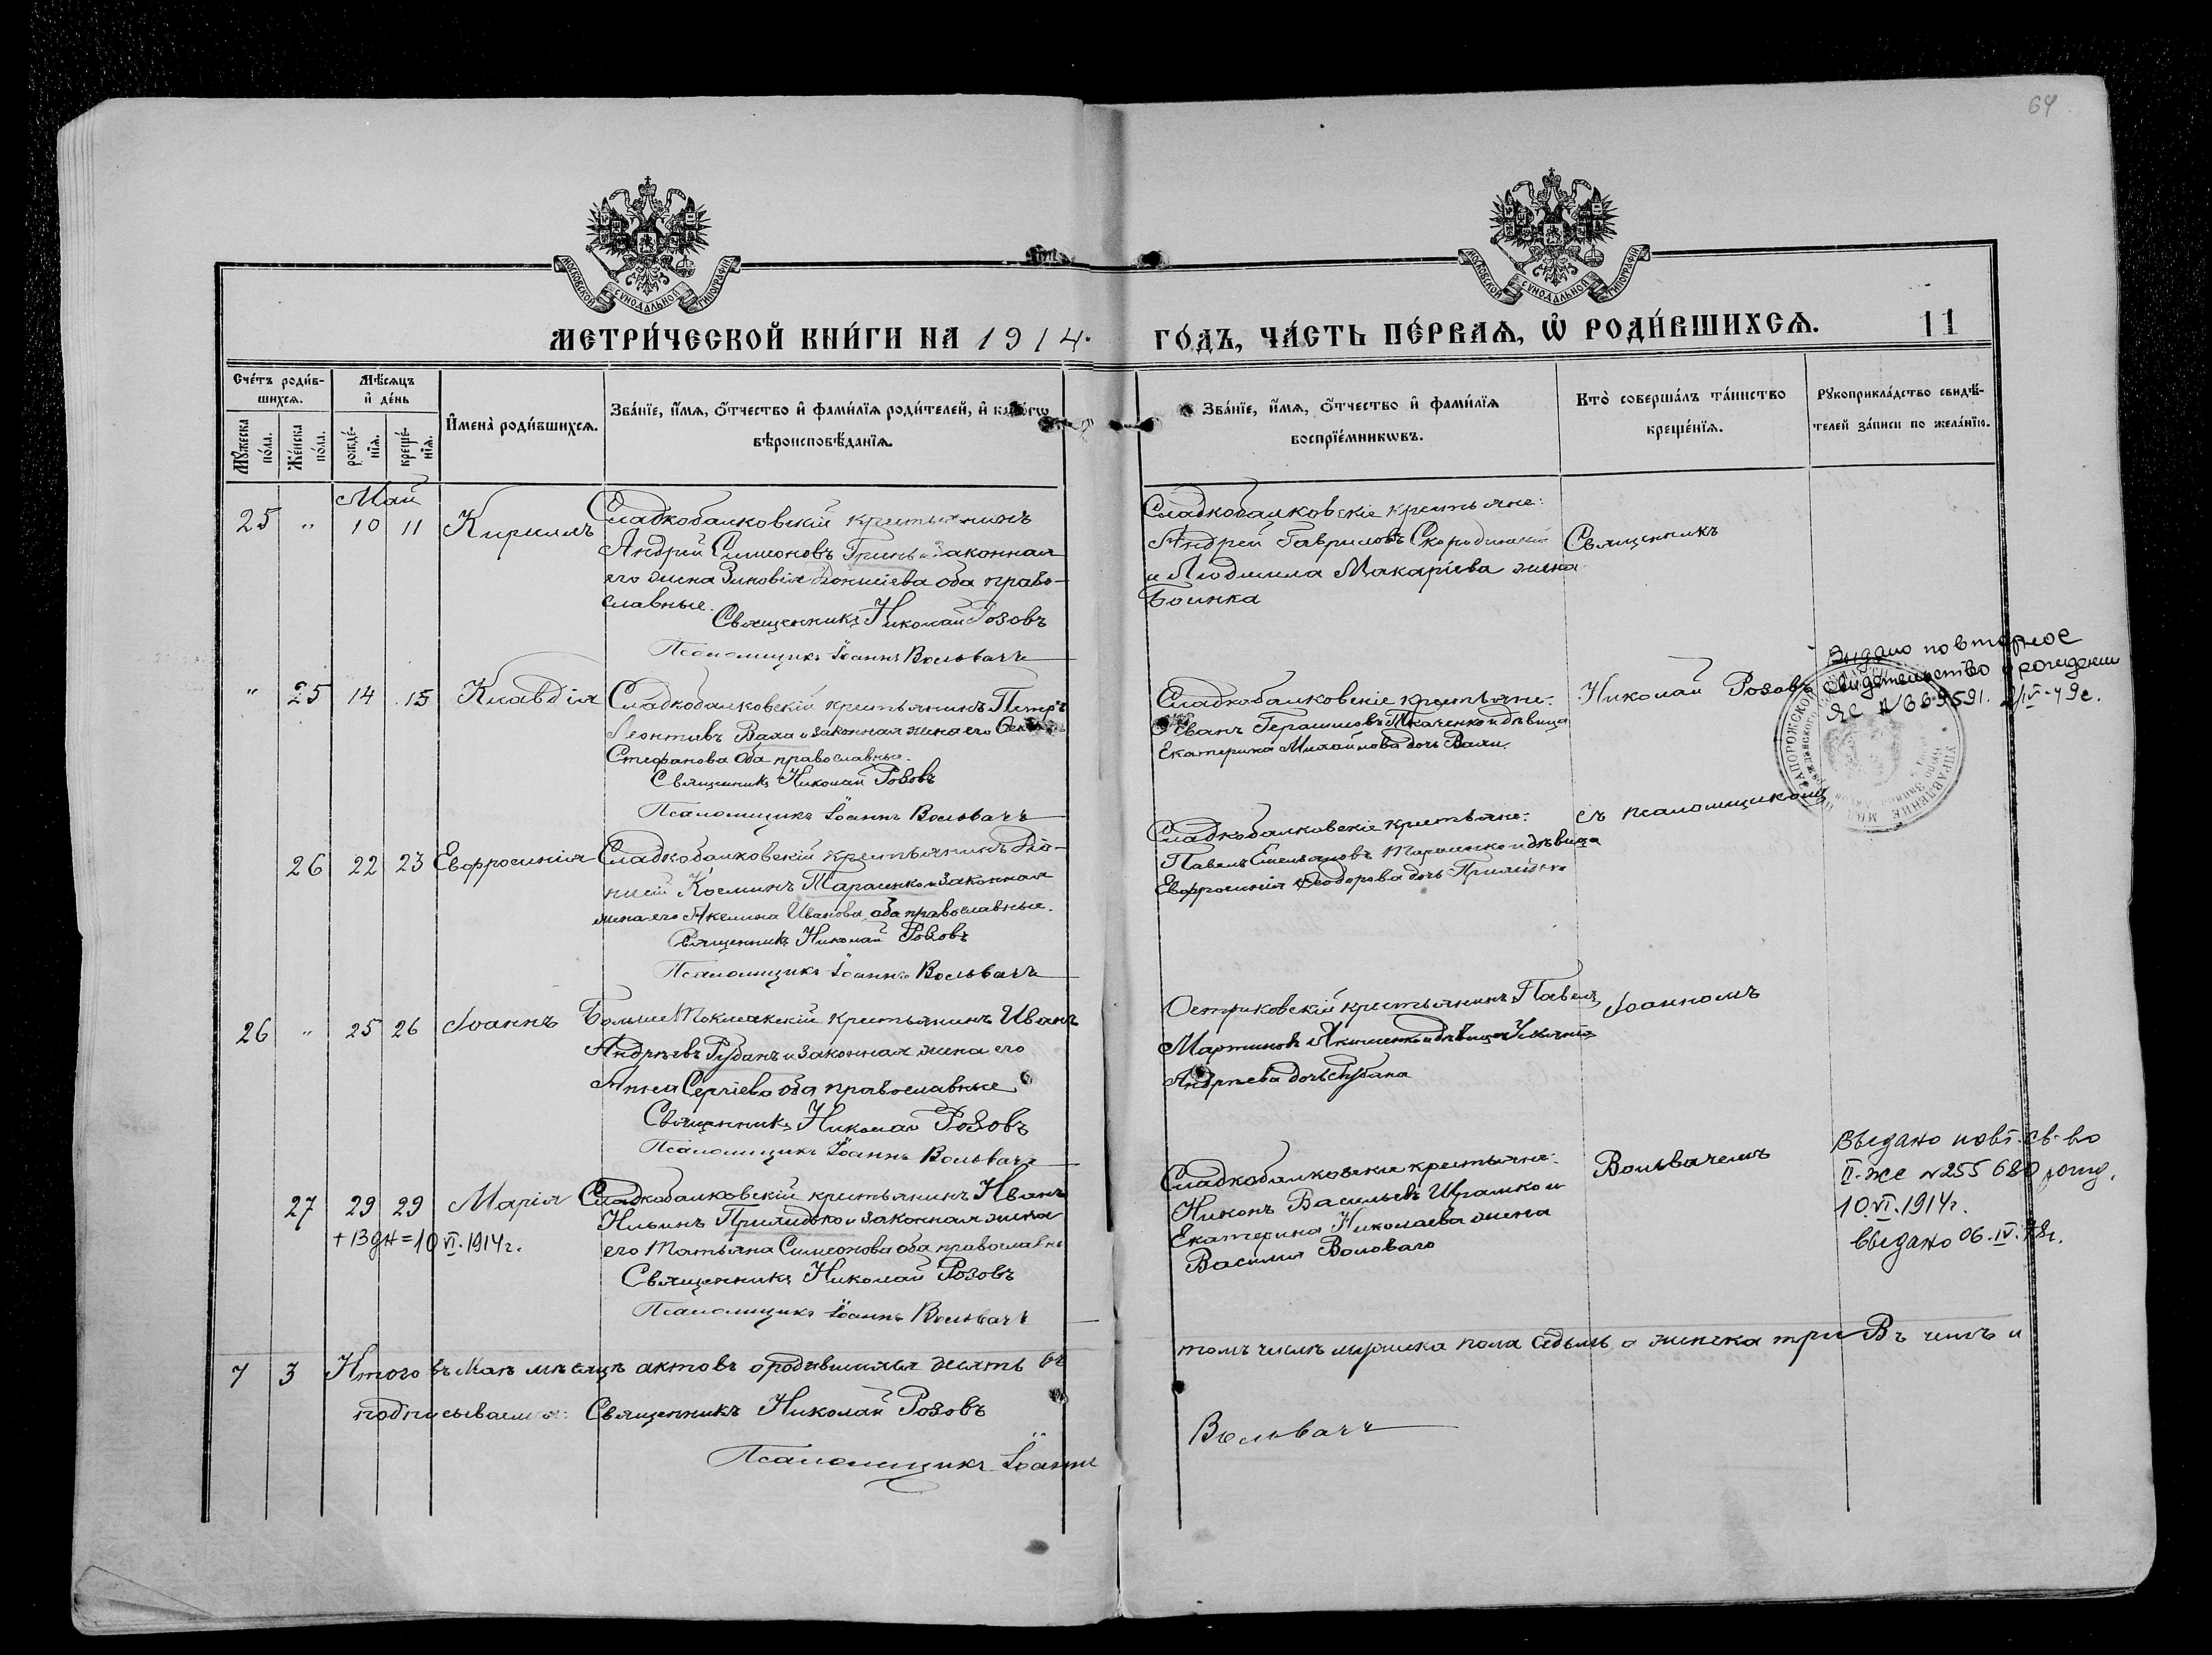 64
МОСКОВСКОЙ СѴНОДАЛЬНОЙ ТИПОГРАФІИ
МОСКОВСКОЙ СѴНОДАЛЬНОЙ ТИПОГРАФІИ
МЕТРИ́ЧЕСКОЙ КНИ́ГИ НА 1914.
ГО́ДЪ, ЧА́СТЬ ПЕ́РВАѦ, Ѡ҆ РОДИ́ВШИХСѦ. 11
Сче́тъ роди́в-
шихсѧ.
Мꙋ́жеска по́ла.
Же́нска по́ла.
Мѣ́сѧцъ
и҆ де́нь
рожде́-
нїѧ.
креще́-
нїѧ.
И҆мена̀ роди́вшихсѧ.
Зва́нїе, и҆́мѧ, ѻ҆́тчество и҆ фами́лїѧ роди́телей, и҆ како́гѡ
вѣроисповѣ́данїѧ.
Зва́нїе, и҆́мѧ, ѻ҆́тчество и҆ фами́лїѧ
воспрїе́мникѡвъ.
Кто̀ соверша́лъ та́инство
креще́нїѧ.
Рꙋкоприкла́дство свидѣ́-
телей за́писи по жела́нїю.
Май
25 " 10 11 Кириллъ
Сладкобалковскій крестьянинъ
Андрей Симеоновъ Гринь и законная
его жена Зиновія Діонисіева оба право-
славные.
Священникъ Николай Розовъ
Псаломщикъ Іоаннъ Вольвачъ
Сладкобалковскіе крестьяне:
Андрей Гавриловъ
и Людмила Макаріева жена
Боинка
Священникъ
" 25 14 15 Клавдія
Сладкобалковскій крестьянинъ Петръ
Леонтіевъ Вала и законная жена его
Стефанова оба православные.
Священникъ Николай Розовъ
Псаломщикъ Іоаннъ Вольвачъ
Сладкобалковскіе крестьяне:
Иванъ Герасимовъ Ткаченко и дѣвица
Екатерина Михайлова дочь Вали.
Николай Розовъ
Выдано повторное
свидетельство о рождении
ЯС № 669591.
26 22 23 Евфросинія
Сладкобалковскій крестьянинъ Діо-
нисій Косминъ Тарасенко и законная
жена его Акелина Иванова, оба православные.
Священникъ Николай Розовъ
Псаломщикъ Іоаннъ Вольвачъ
Сладкобалковскіе крестьяне:
Павелъ Емельяновъ Тарасенко и дѣвица
Евфросинія Ѳеодорова дочь
съ псаломщикомъ
26 " 25 26 Іоаннъ
БольшеТокмакскій крестьянинъ Иванъ
Андреевъ Рубанъ и законная жена его
Анна Сергіева оба православные
Священникъ Николай Розовъ
Псаломщикъ Іоаннъ Вольвачъ
Остриковскій крестьянинъ Павелъ
Мартиновъ Якименко и дѣвица
Андреева дочь Рубана
Іоанномъ
27 29 29 Марія
+13дн=10.VI.1914г.
Сладкобалковскій крестьянинъ Иванъ
Ильинъ Прилидько и законная жена
его Татьяна Симеонова оба православные
Священникъ Николай Розовъ
Псаломщикъ Іоаннъ Вольвачъ
Сладкобалковскіе крестьяне:
Никонъ Васильевъ Шрамко и
Екатерина Николаева жена
Василія Воловаго
Вольвачемъ
Выдано повт. св-во
II-жс №255680 рожд.
10.VI.1914г.
выдано 06.IV.78г.
7 3 Итого въ Маѣ мѣсяцѣ актовъ о родившихся десять въ
томъ числѣ мужеска пола седьмь, а женска три Въ чемъ и
подписываемся: Священникъ Николай Розовъ
Псаломщикъ Іоаннъ
Вольвачъ